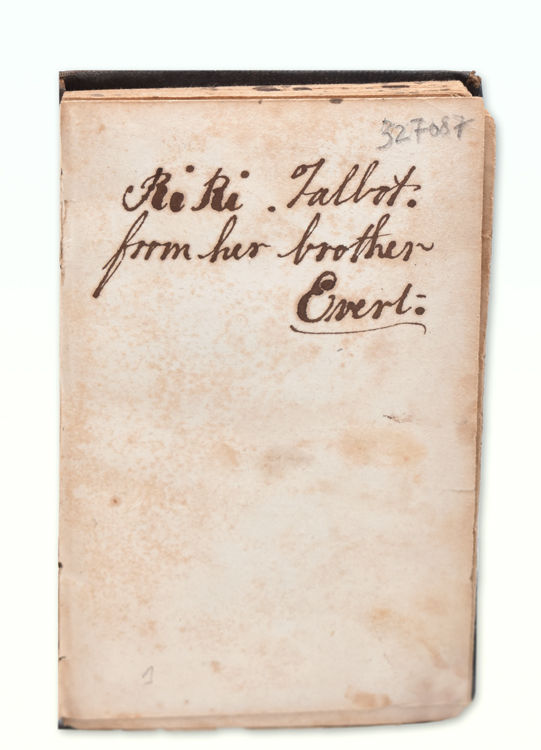 327087
RiRi. Talbot:
from her brother
Evert:
1